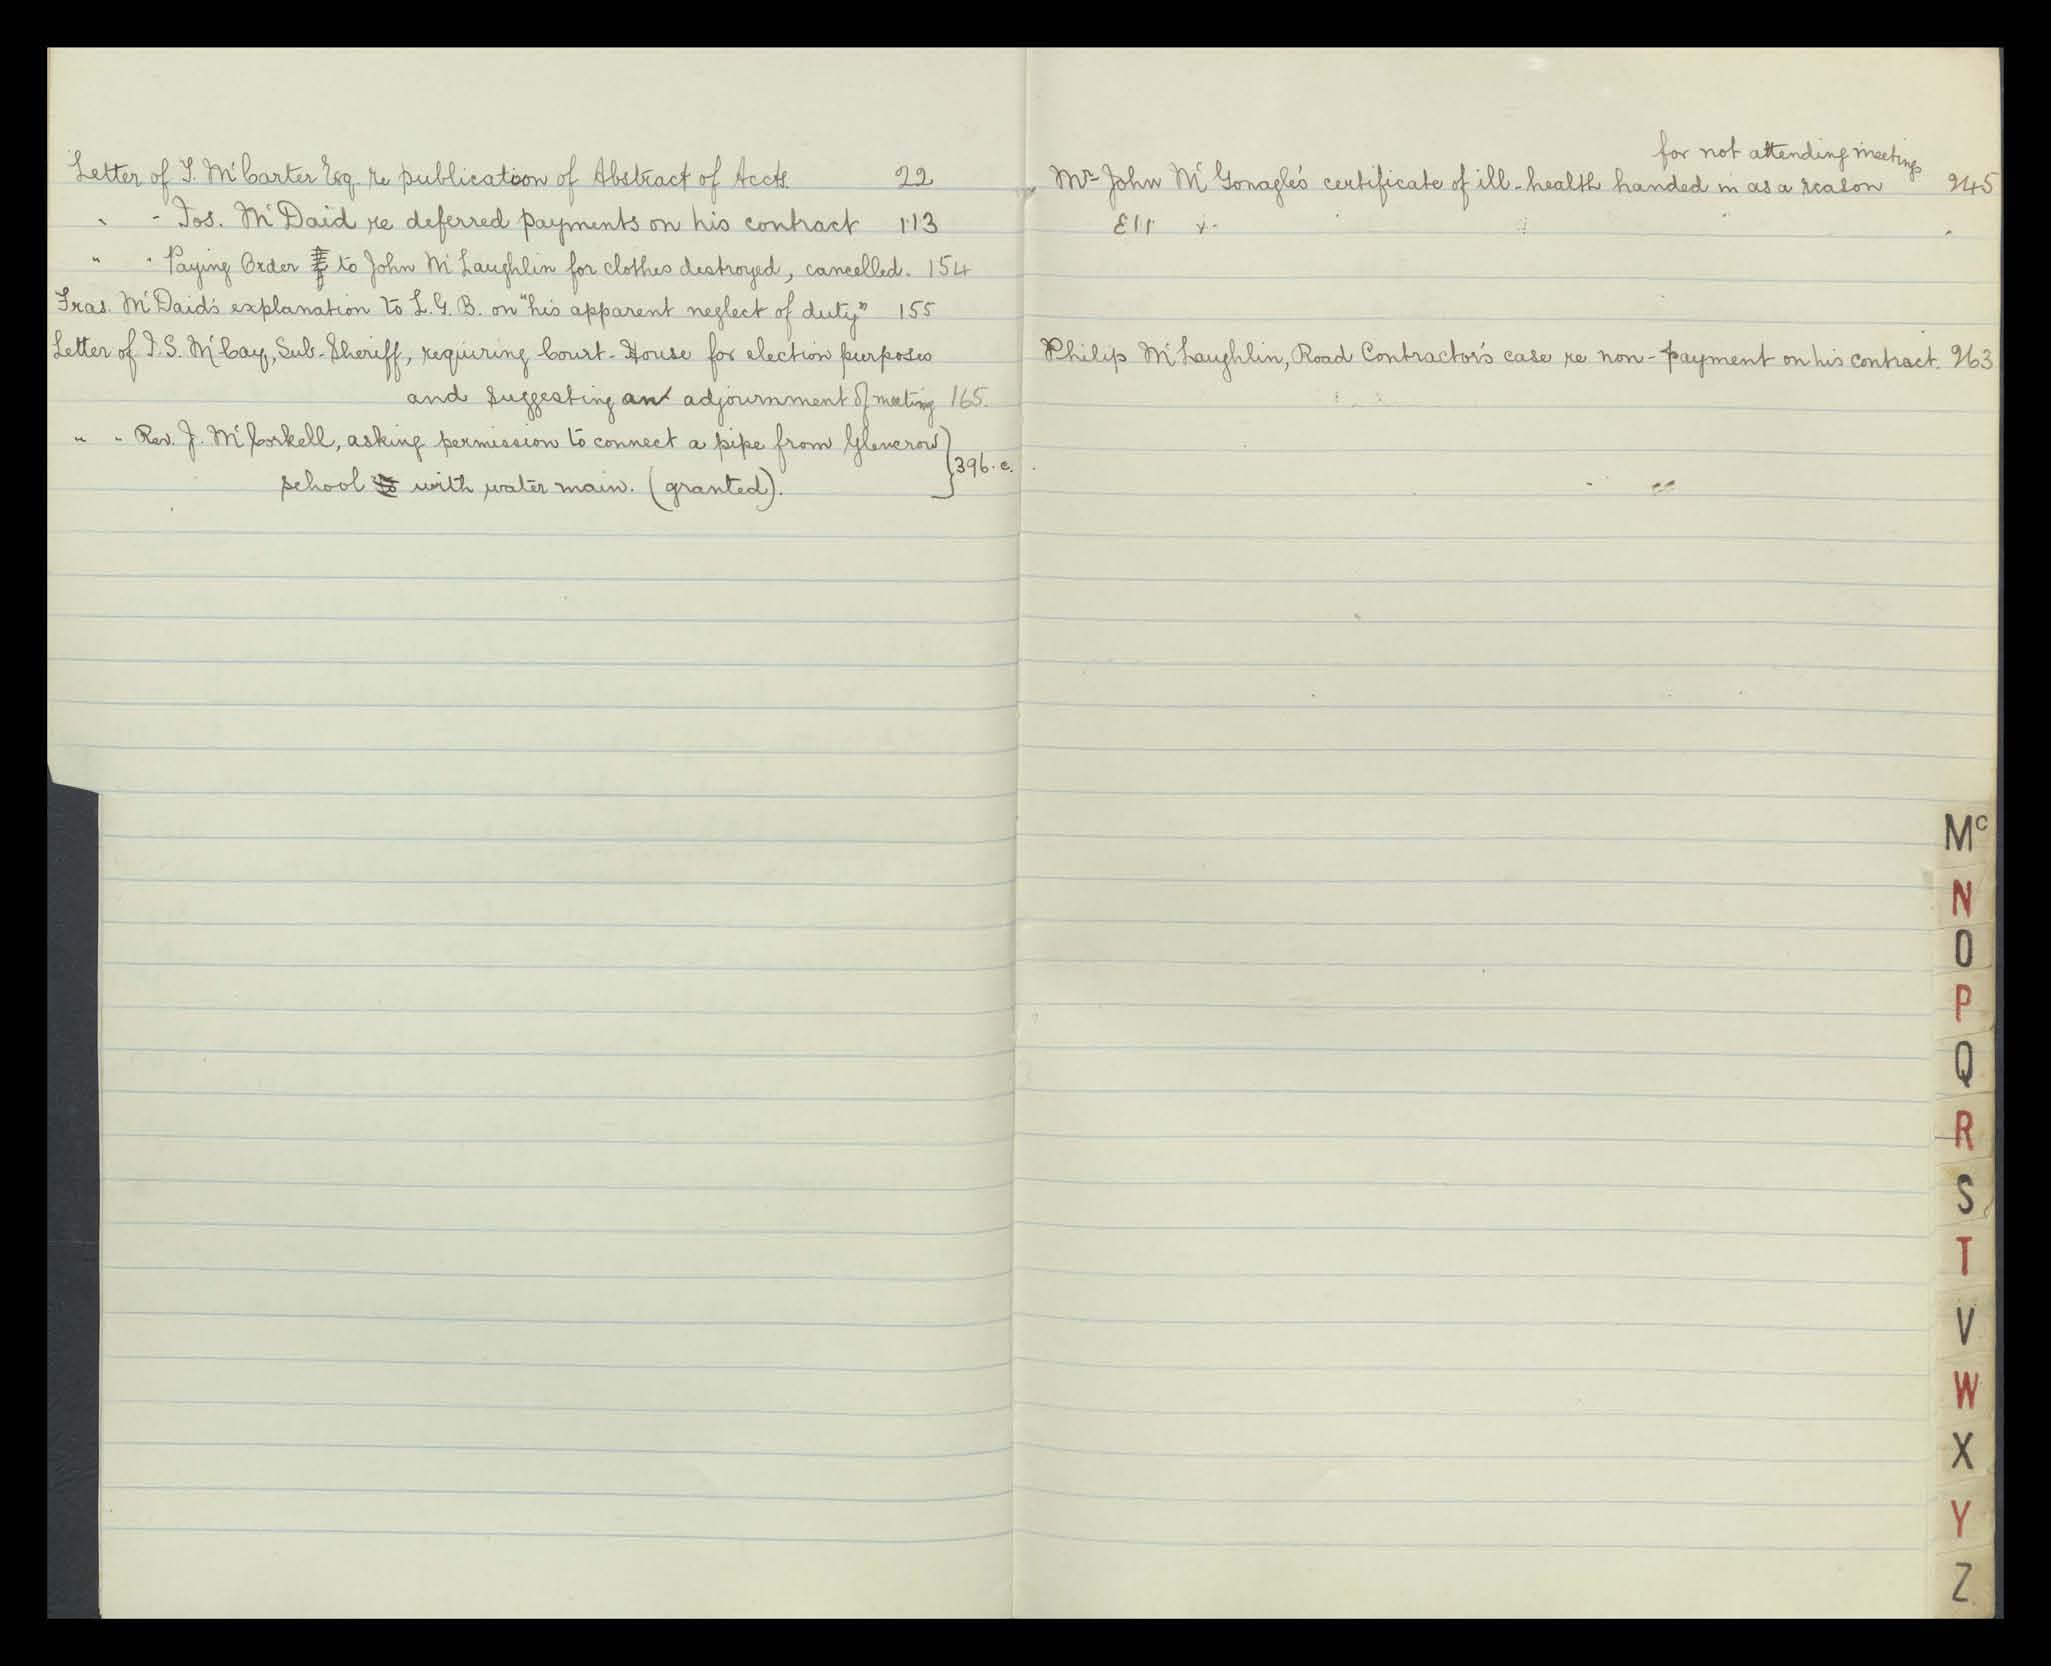 Letter of J. McCarter Esq. re publication of Abstract of Accts. 22
" - Jos. McDaid re deferred payments on his contract 113
" " Paying Order to John McLaughlin for clothes destroyed, cancelled. 154
Fras. McDaid's explanation to L.G.B. on "his apparent neglect of duty" 155
Letter of J.S. McCay, Sub-Sheriff, requiring Court-House for election purposes
and suggesting an adjournment of meeting 165.
" " Rev. J. McCorkell, asking permission to connect a pipe from Glencrow
school with water main. (granted). 396.c.
for not attending meetings
Mr John McGonagle's certificate of ill-health handed in as a reason 245
Philip McLaughlin, Road Contractor's case re non-payment on his contract. 263
Mc
N
O
P
Q
R
S
T
V
W
X
Y
Z